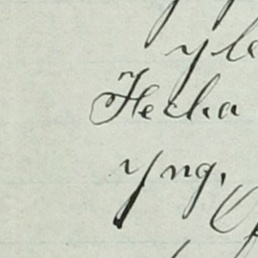 y le
Fecha
y ng,